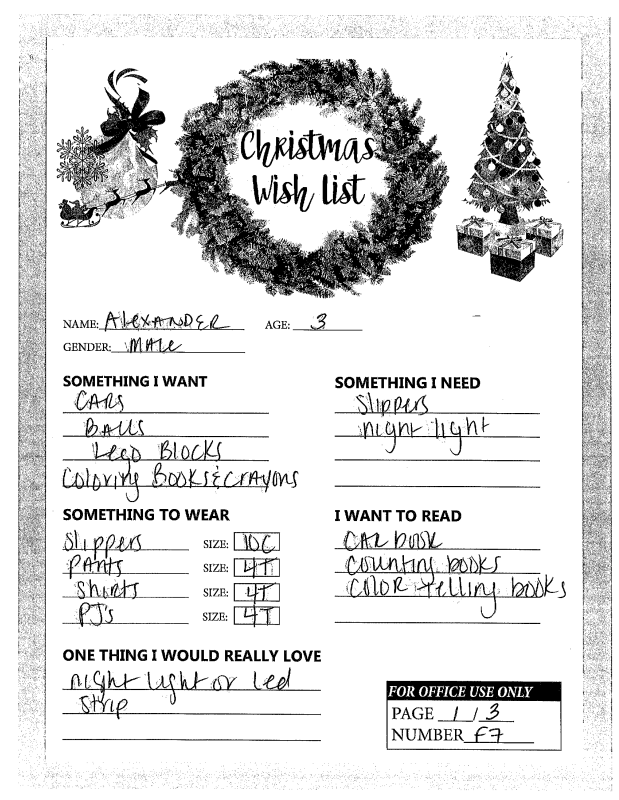 Christmas
Wish list
NAME: AleXANDER AGE: 3
GENDER: MAle
SOMETHING I WANT
CARS
BALLS
Lego Blocks
Coloring Books & CrAyons
SOMETHING I NEED
Slippers
night light
SOMETHING TO WEAR
Slippers SIZE: 10C
PANTS SIZE: 4T
Shirts SIZE: 4T
PJ's SIZE: 4T
I WANT TO READ
CAR book
counting books
COLOR telling books
ONE THING I WOULD REALLY LOVE
night light or led
strip
FOR OFFICE USE ONLY
PAGE 1 / 3
NUMBER F7